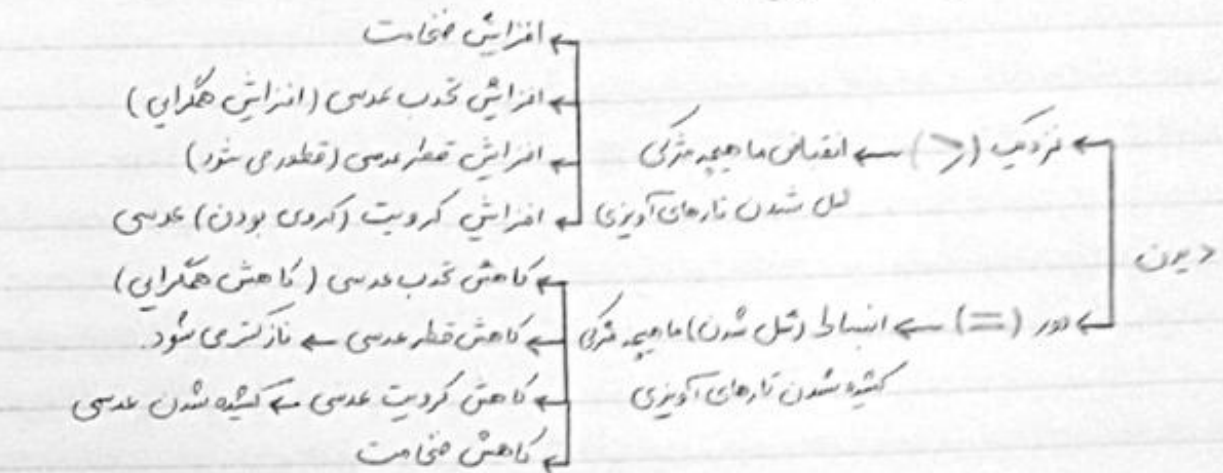 دیدن
نزدیک (>) ← انقباض ماهیچه مژکی
شل شدن تارهای آویزی
افزایش ضخامت
افزایش تحدب عدسی (افزایش همگرایی)
افزایش قطر عدسی (قطور می شود)
افزایش کرویت (کروی بودن) عدسی
دور (=) ← انبساط (شل شدن) ماهیچه مژکی
کشیده شدن تارهای آویزی
کاهش تحدب عدسی (کاهش همگرایی)
کاهش قطر عدسی ← نازکتر می شود.
کاهش کرویت عدسی ← کشیده شدن عدسی
کاهش ضخامت